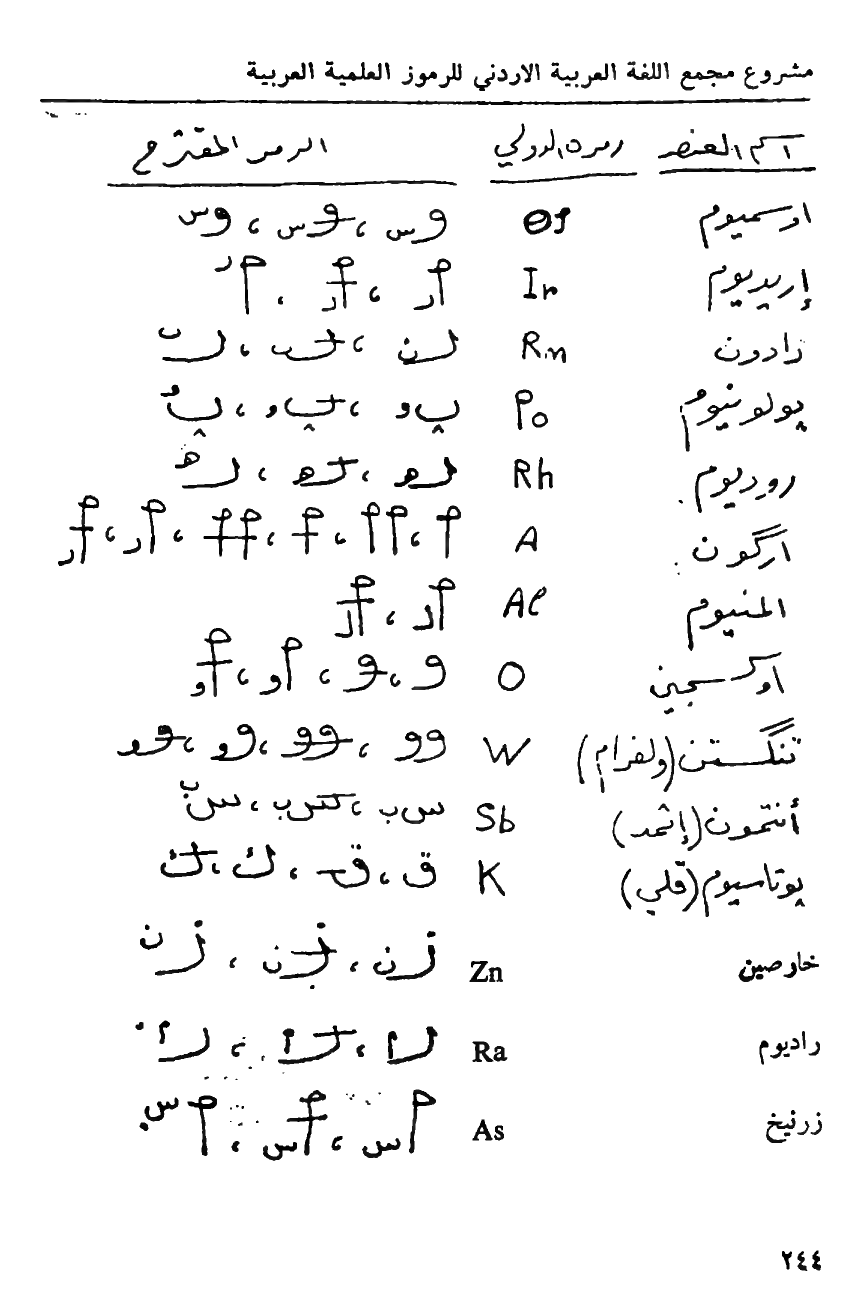 مشروع مجمع اللغة العربية الاردني للرموز العلمية العربية
اسم العنصر رمزه الدولي الرمز المقترح
اوسميوم Os وس ، وس ، وس
إريديوم Ir أر ، أر ،
رادون Rn رن ،
پولونيوم Po پو ، پو ، پو
روديوم Rh رهـ ، رهـ ، رهـ
ارگون A
المنيوم Al
اوكسجين O و ، و ،
تنگستن (ولفرام) W وو ، وو ، وو ،
أنتمون (إثمد) Sb سب ، سب ، سب
پوتاسيوم (قلي) K ق ، ق ، ك ، ك
خارصين Zn زن ، زن ، زن
راديوم Ra را ، را ، را
زرنيخ As
٢٤٤